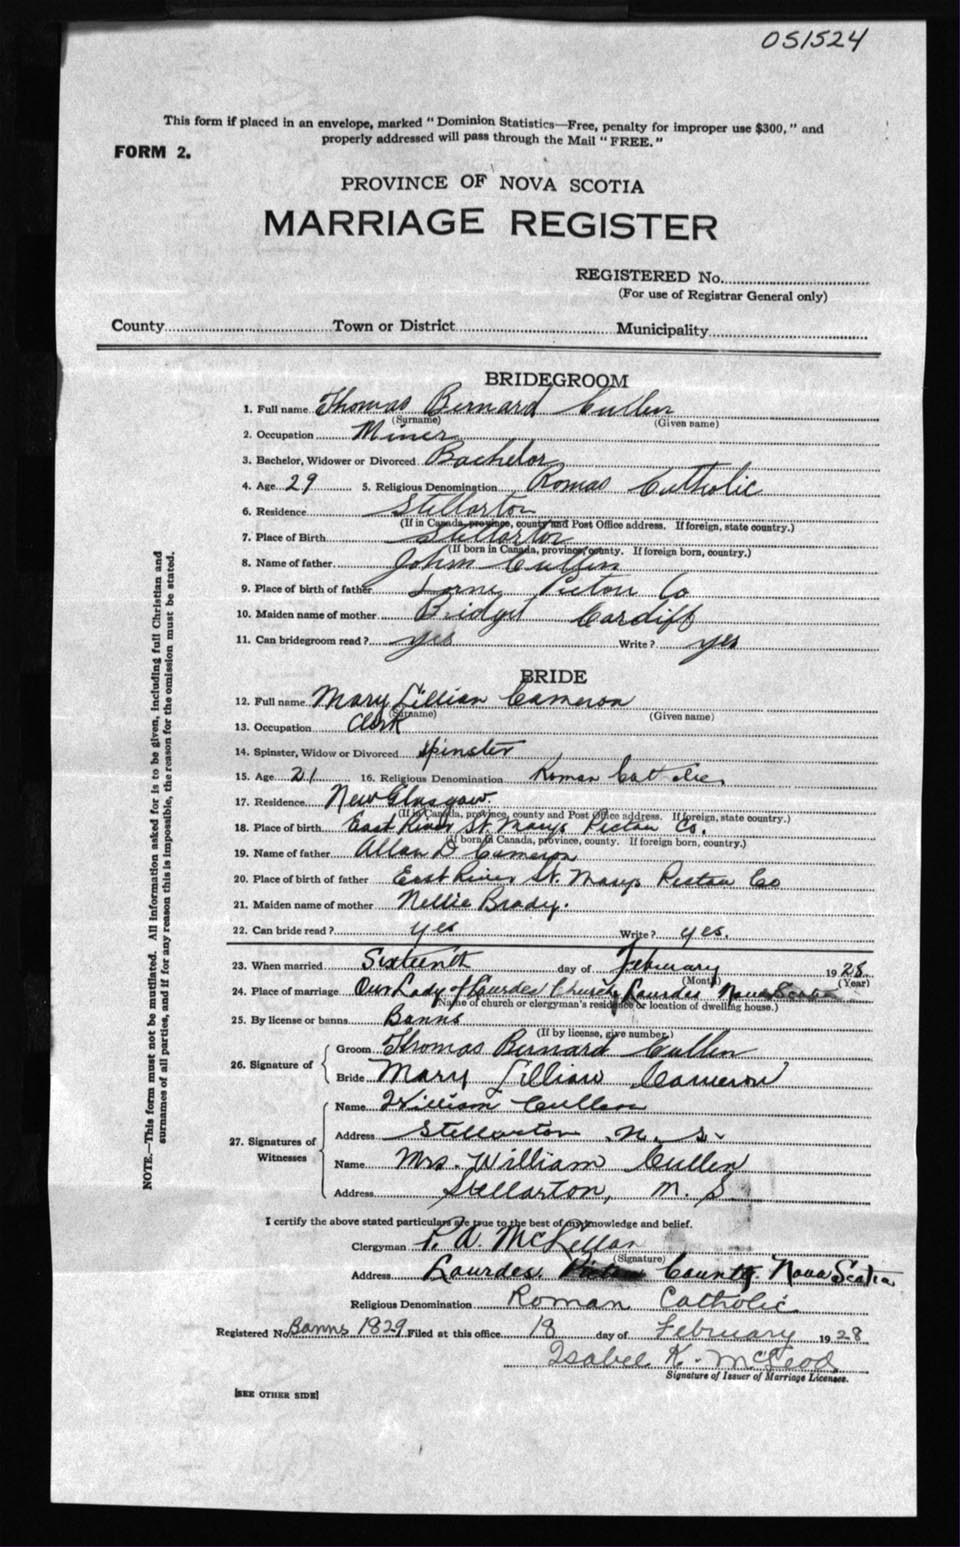 051524
This form if placed in an envelope, marked "Dominion Statistics—Free, penalty for improper use $300," and
properly addressed will pass through the Mail "FREE."
FORM 2.
PROVINCE OF NOVA SCOTIA
MARRIAGE REGISTER
REGISTERED No.
(For use of Registrar General only)
County Town or District Municipality
BRIDEGROOM
1. Full name Thomas Bernard Cullen
(Surname) (Given name)
2. Occupation Miner
3. Bachelor, Widower or Divorced Bachelor
4. Age 29 5. Religious Denomination Roman Catholic
6. Residence Stellarton
(If in Canada, province, county and Post Office address. If foreign, state country.)
7. Place of Birth Stellarton
(If born in Canada, province, county. If foreign born, country.)
8. Name of father John Cullen
9. Place of birth of father Lorne Pictou Co
10. Maiden name of mother Bridget Cardiff
11. Can bridegroom read? yes Write? yes
BRIDE
12. Full name Mary Lillian Cameron
(Surname) (Given name)
13. Occupation Clerk
14. Spinster, Widow or Divorced Spinster
15. Age 21 16. Religious Denomination Roman Catholic
17. Residence New Glasgow.
(If in Canada, province, county and Post Office address. If foreign, state country.)
18. Place of birth East River St. Marys Pictou Co.
(If born in Canada, province, county. If foreign born, country.)
19. Name of father Allan D Cameron
20. Place of birth of father East River St. Marys Pictou Co
21. Maiden name of mother Nellie Brady.
22. Can bride read? yes Write? yes.
23. When married Sixteenth day of February 1928.
(Month) (Year)
24. Place of marriage Our Lady of Lourdes Church, Lourdes Nova Scotia
(Name of church or clergyman's residence or location of dwelling house.)
25. By license or banns Banns
(If by license, give number.)
26. Signature of Groom Thomas Bernard Cullen
Bride Mary Lillian Cameron
27. Signatures of Witnesses
Name William Cullen
Address Stellarton N. S.
Name Mrs. William Cullen
Address Stellarton, N. S.
I certify the above stated particulars are true to the best of my knowledge and belief.
Clergyman P. A. McLellan
(Signature)
Address Lourdes County. Nova Scotia
Religious Denomination Roman Catholic
Registered No Banns 1829 Filed at this office 18 day of February 1928
Isabel K. McLeod
Signature of Issuer of Marriage Licenses.
[SEE OTHER SIDE]
NOTE.—This form must not be mutilated. All information asked for is to be given, including full Christian and
surnames of all parties, and if for any reason this is impossible, the reason for the omission must be stated.